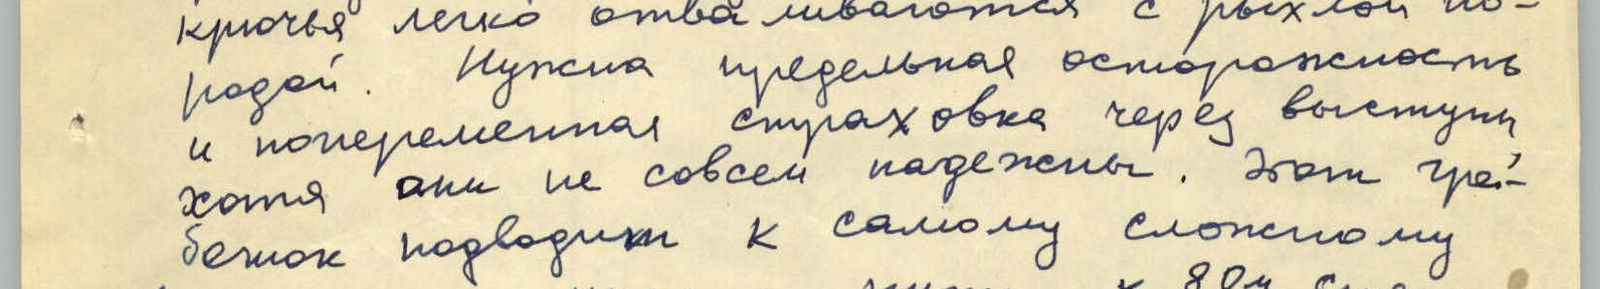 крючья легко отваливаются с рыхлой по-
родой. Нужна предельная осторожность
и попеременная страховка через выступы
хотя они не совсем надежны. Этот гре-
бешок подводит к самому сложному
к 80м